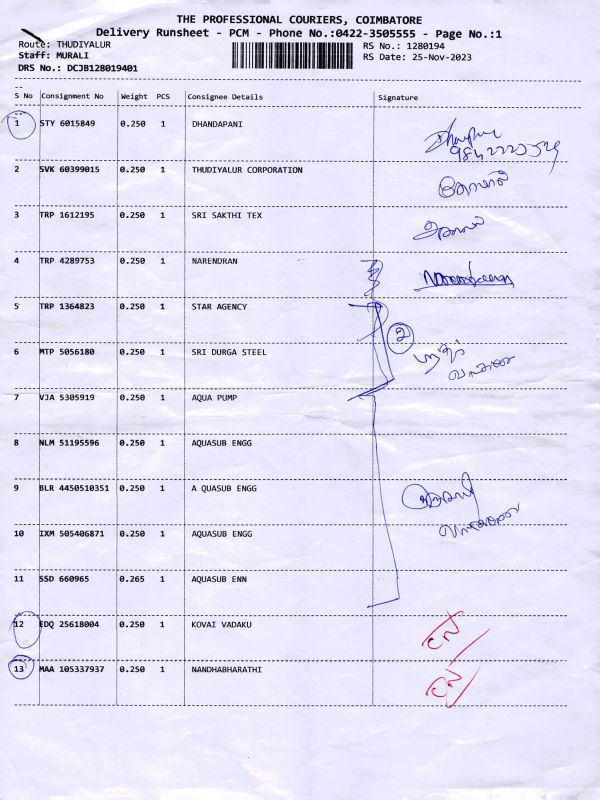 THE PROFESSIONAL COURIERS, COIMBATORE
Delivery Runsheet - PCM - Phone No.:0422-3505555 - Page No.:1
Route: THUDIYALUR
RS No.: 1280194
Staff: MURALI
RS Date: 25-Nov-2023
DRS No.: DCJB128019401
S No Consignment No Weight PCS Consignee Details Signature
1 STY 6015849 0.250 1 DHANDAPANI
2 SVK 60399015 0.250 1 THUDIYALUR CORPORATION
3 TRP 1612195 0.250 1 SRI SAKTHI TEX
4 TRP 4289753 0.250 1 NARENDRAN
5 TRP 1364823 0.250 1 STAR AGENCY
2
6 MTP 5056180 0.250 1 SRI DURGA STEEL
7 VJA 5305919 0.250 1 AQUA PUMP
8 NLM 51195596 0.250 1 AQUASUB ENGG
9 BLR 4450510351 0.250 1 A QUASUB ENGG
10 IXM 505406871 0.250 1 AQUASUB ENGG
11 SSD 660965 0.265 1 AQUASUB ENN
12 EDQ 25618004 0.250 1 KOVAI VADAKU
13 MAA 105337937 0.250 1 NANDHABHARATHI